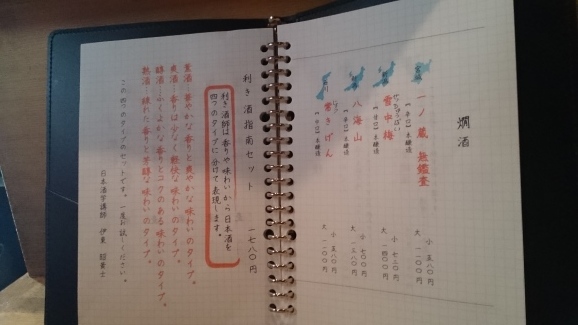 燗酒
宮城
一ノ蔵 無鑑査
【辛口】本醸造
小 五八〇円
大 一一〇〇円
新潟
せっちゅうばい
雪中梅
【甘口】本醸造
小 七二〇円
大 一四〇〇円
新潟
八海山
【辛口】本醸造
小 七〇〇円
大 一三八〇円
石川
じょう
常きげん
本醸造
小 五八〇円
大 一一〇〇円
利き酒指南セット 一七八〇円
利き酒師は香りや味わいから日本酒を
四つのタイプに分けて表現します。
薫酒…華やかな香りと爽やかな味わいのタイプ。
爽酒…香りは少なく軽快な味わいのタイプ。
醇酒…ふくよかな香りとコクのある味わいのタイプ。
熟酒…練れた香りと芳醇な味わいのタイプ。
この四つのタイプのセットです。一度お試しください。
日本酒学講師 伊東